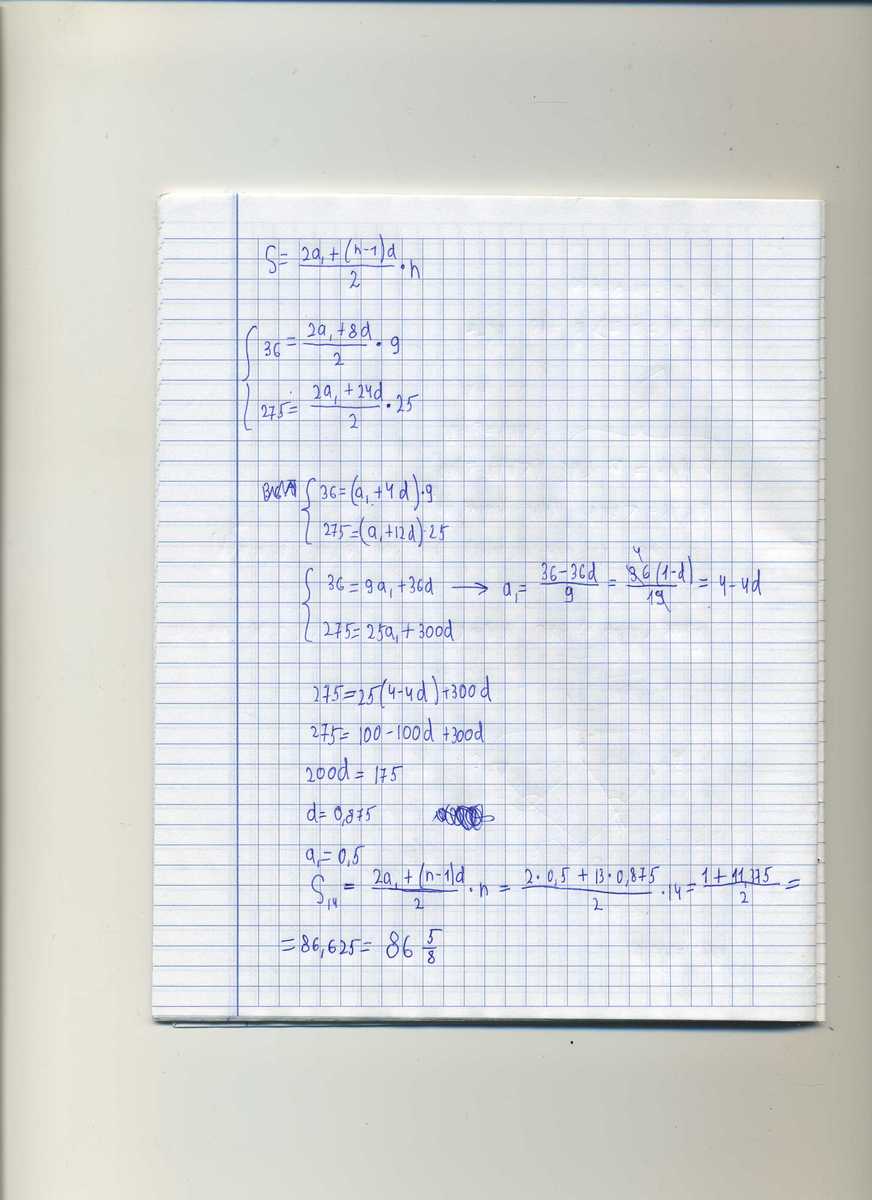 S = (2a₁ + (n-1)d)/2 · n
{ 36 = (2a₁ + 8d)/2 · 9
275 = (2a₁ + 24d)/2 · 25
{ 36 = (a₁ + 4d) · 9
275 = (a₁ + 12d) · 25
{ 36 = 9a₁ + 36d → a₁ = (36 - 36d)/9 = 36(1-d)/19 = 4 - 4d
275 = 25a₁ + 300d
275 = 25(4 - 4d) + 300d
275 = 100 - 100d + 300d
200d = 175
d = 0,875
a₁ = 0,5
S₁₄ = (2a₁ + (n-1)d)/2 · n = (2 · 0,5 + 13 · 0,875)/2 · 14 = (1 + 11,375)/2 =
= 86,625 = 86 5/8